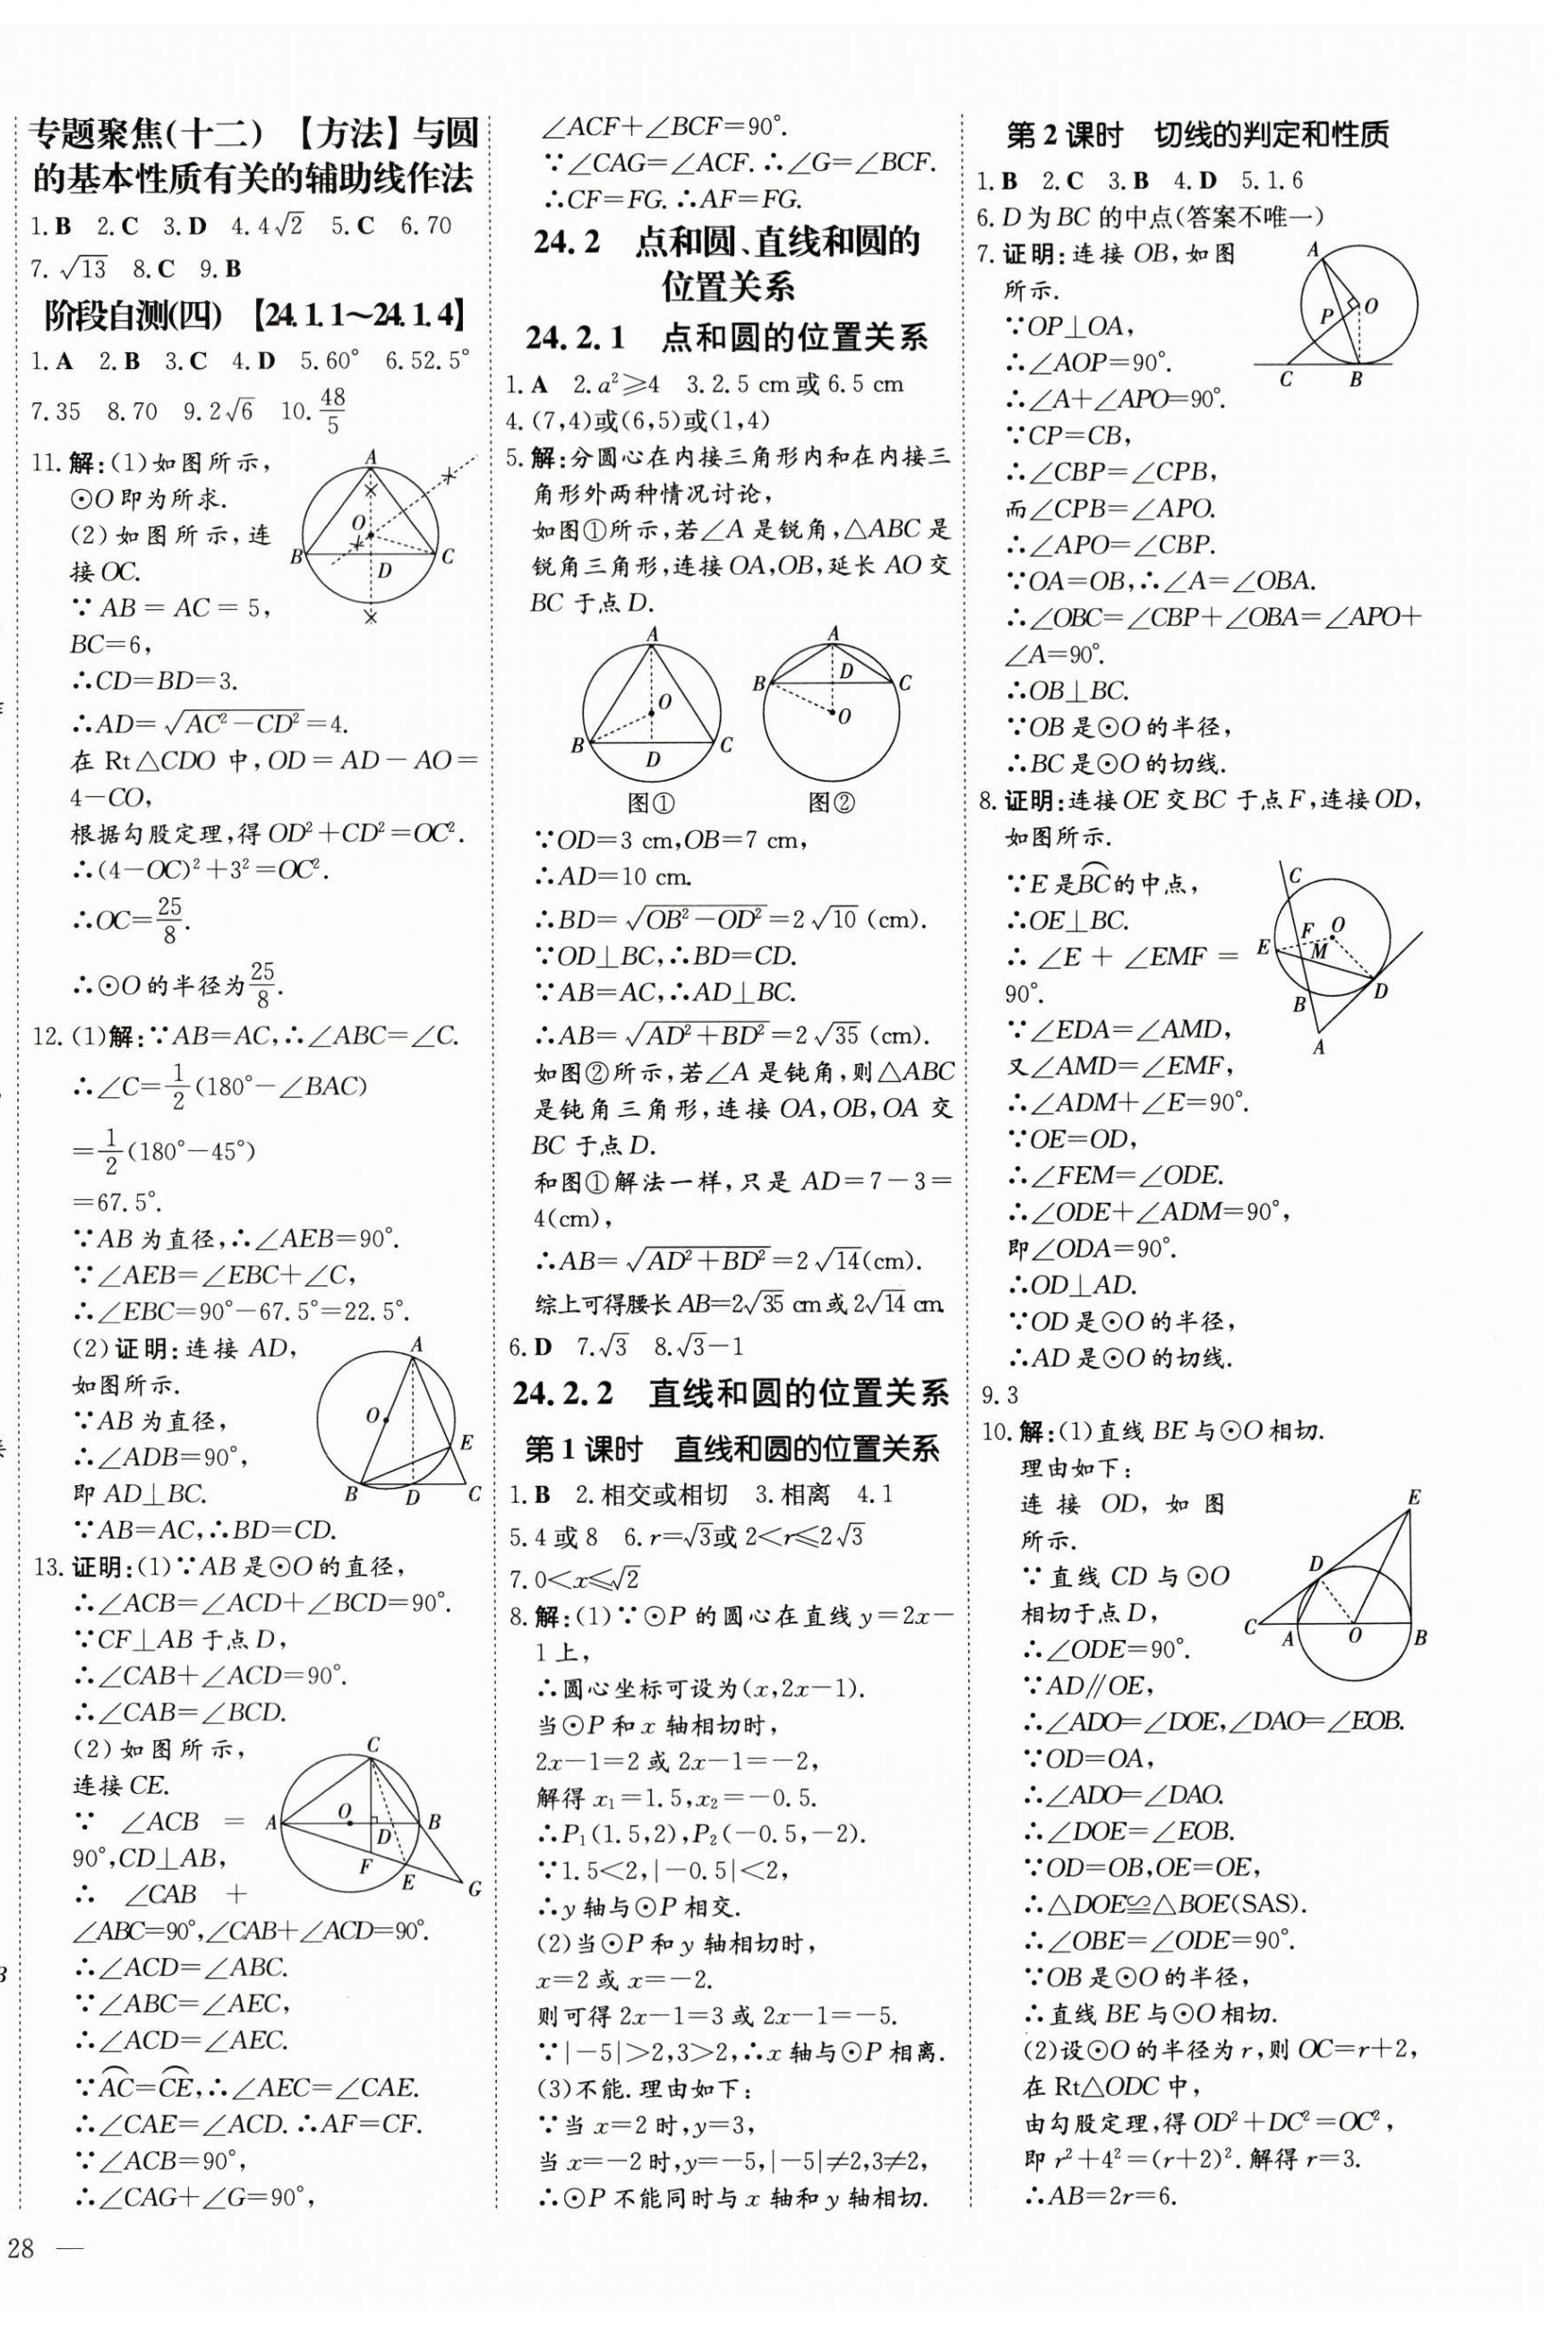 专题聚焦(十二) 【方法】与圆
的基本性质有关的辅助线作法
1.B 2.C 3.D 4.4√2 5.C 6.70
7.√13 8.C 9.B
阶段自测(四) 【24.1.1~24.1.4】
1.A 2.B 3.C 4.D 5.60° 6.52.5°
7.35 8.70 9.2√6 10.48/5
11.解:(1)如图所示,
⊙O即为所求.
(2)如图所示,连
接OC.
∵AB=AC=5,
BC=6,
∴CD=BD=3.
∴AD=√(AC²-CD²)=4.
在Rt△CDO中,OD=AD-AO=
4-CO,
根据勾股定理,得OD²+CD²=OC².
∴(4-OC)²+3²=OC².
∴OC=25/8.
∴⊙O的半径为25/8.
A
O
B
D
C
12.(1)解:∵AB=AC,∴∠ABC=∠C.
∴∠C=1/2(180°-∠BAC)
=1/2(180°-45°)
=67.5°.
∵AB为直径,∴∠AEB=90°.
∵∠AEB=∠EBC+∠C,
∴∠EBC=90°-67.5°=22.5°.
(2)证明:连接AD,
如图所示.
∵AB为直径,
∴∠ADB=90°,
即AD⊥BC.
∵AB=AC,∴BD=CD.
A
O
E
B D C
13.证明:(1)∵AB是⊙O的直径,
∴∠ACB=∠ACD+∠BCD=90°.
∵CF⊥AB于点D,
∴∠CAB+∠ACD=90°.
∴∠CAB=∠BCD.
(2)如图所示,
连接CE.
∵∠ACB=
90°,CD⊥AB,
∴∠CAB+
∠ABC=90°,∠CAB+∠ACD=90°.
∴∠ACD=∠ABC.
∵∠ABC=∠AEC,
∴∠ACD=∠AEC.
∵A͡C=C͡E,∴∠AEC=∠CAE.
∴∠CAE=∠ACD.∴AF=CF.
∵∠ACB=90°,
∴∠CAG+∠G=90°,
C
A O D B
F E G
28 —
∠ACF+∠BCF=90°.
∵∠CAG=∠ACF.∴∠G=∠BCF.
∴CF=FG.∴AF=FG.
24.2 点和圆、直线和圆的
位置关系
24.2.1 点和圆的位置关系
1.A 2.a²≥4 3.2.5 cm或6.5 cm
4.(7,4)或(6,5)或(1,4)
5.解:分圆心在内接三角形内和在内接三
角形外两种情况讨论,
如图①所示,若∠A是锐角,△ABC是
锐角三角形,连接OA,OB,延长AO交
BC于点D.
A
O
B D C
图①
A
B D C
O
图②
∵OD=3 cm,OB=7 cm,
∴AD=10 cm.
∴BD=√(OB²-OD²)=2√10 (cm).
∵OD⊥BC,∴BD=CD.
∵AB=AC,∴AD⊥BC.
∴AB=√(AD²+BD²)=2√35 (cm).
如图②所示,若∠A是钝角,则△ABC
是钝角三角形,连接OA,OB,OA交
BC于点D.
和图①解法一样,只是AD=7-3=
4(cm),
∴AB=√(AD²+BD²)=2√14(cm).
综上可得腰长AB=2√35 cm或2√14 cm.
6.D 7.√3 8.√3-1
24.2.2 直线和圆的位置关系
第1课时 直线和圆的位置关系
1.B 2.相交或相切 3.相离 4.1
5.4或8 6.r=√3或2<r≤2√3
7.0<x≤√2
8.解:(1)∵⊙P的圆心在直线y=2x-
1上,
∴圆心坐标可设为(x,2x-1).
当⊙P和x轴相切时,
2x-1=2或2x-1=-2,
解得x₁=1.5,x₂=-0.5.
∴P₁(1.5,2),P₂(-0.5,-2).
∵1.5<2,|-0.5|<2,
∴y轴与⊙P相交.
(2)当⊙P和y轴相切时,
x=2或x=-2.
则可得2x-1=3或2x-1=-5.
∵|-5|>2,3>2,∴x轴与⊙P相离.
(3)不能.理由如下:
∵当x=2时,y=3,
当x=-2时,y=-5,|-5|≠2,3≠2,
∴⊙P不能同时与x轴和y轴相切.
第2课时 切线的判定和性质
1.B 2.C 3.B 4.D 5.1.6
6.D为BC的中点(答案不唯一)
7.证明:连接OB,如图
所示.
∵OP⊥OA,
∴∠AOP=90°.
∴∠A+∠APO=90°.
∵CP=CB,
∴∠CBP=∠CPB,
而∠CPB=∠APO.
∴∠APO=∠CBP.
∵OA=OB,∴∠A=∠OBA.
∴∠OBC=∠CBP+∠OBA=∠APO+
∠A=90°.
∴OB⊥BC.
∵OB是⊙O的半径,
∴BC是⊙O的切线.
A
P O
C B
8.证明:连接OE交BC于点F,连接OD,
如图所示.
∵E是B͡C的中点,
∴OE⊥BC.
∴∠E+∠EMF=
90°.
∵∠EDA=∠AMD,
又∠AMD=∠EMF,
∴∠ADM+∠E=90°.
∵OE=OD,
∴∠FEM=∠ODE.
∴∠ODE+∠ADM=90°,
即∠ODA=90°.
∴OD⊥AD.
∵OD是⊙O的半径,
∴AD是⊙O的切线.
C
F O
E M
B D
A
9.3
10.解:(1)直线BE与⊙O相切.
理由如下:
连接OD,如图
所示.
∵直线CD与⊙O
相切于点D,
∴∠ODE=90°.
∵AD∥OE,
∴∠ADO=∠DOE,∠DAO=∠EOB.
∵OD=OA,
∴∠ADO=∠DAO.
∴∠DOE=∠EOB.
∵OD=OB,OE=OE,
∴△DOE≌△BOE(SAS).
∴∠OBE=∠ODE=90°.
∵OB是⊙O的半径,
∴直线BE与⊙O相切.
(2)设⊙O的半径为r,则OC=r+2,
在Rt△ODC中,
由勾股定理,得OD²+DC²=OC²,
即r²+4²=(r+2)².解得r=3.
∴AB=2r=6.
E
D
C A O B